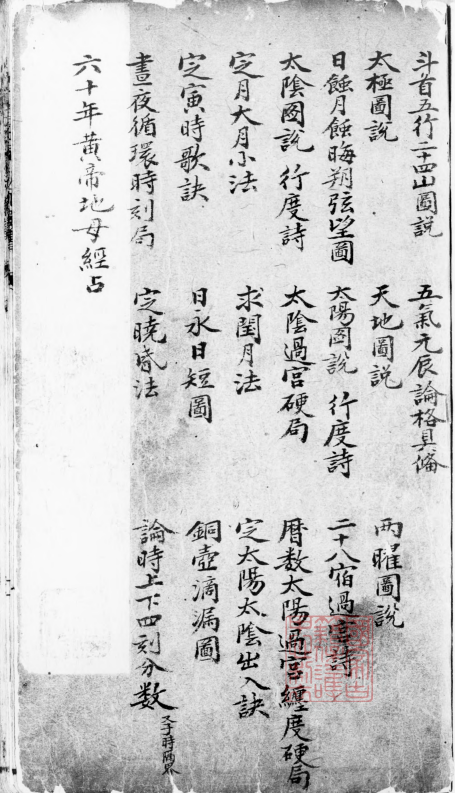 斗首五行二十四山圖説 五氣元辰論格具僃
太極圖説 天地圖説 兩曜圖説
日蝕月蝕晦朔弦望圖 太陽圖説 行度詩 二十八宿過宮詩
太陰圖説 行度詩 太陰過宮硬局 曆数太陽過宮纏度硬局
定月大月小法 求閏月法 定太陽太陰出入訣
定寅時歌訣 日永日短圖 銅壺滴漏圖
晝夜循環時刻局 定曉昏法 論時上下四刻分数 又子時兩界
六十年黃帝地母經占